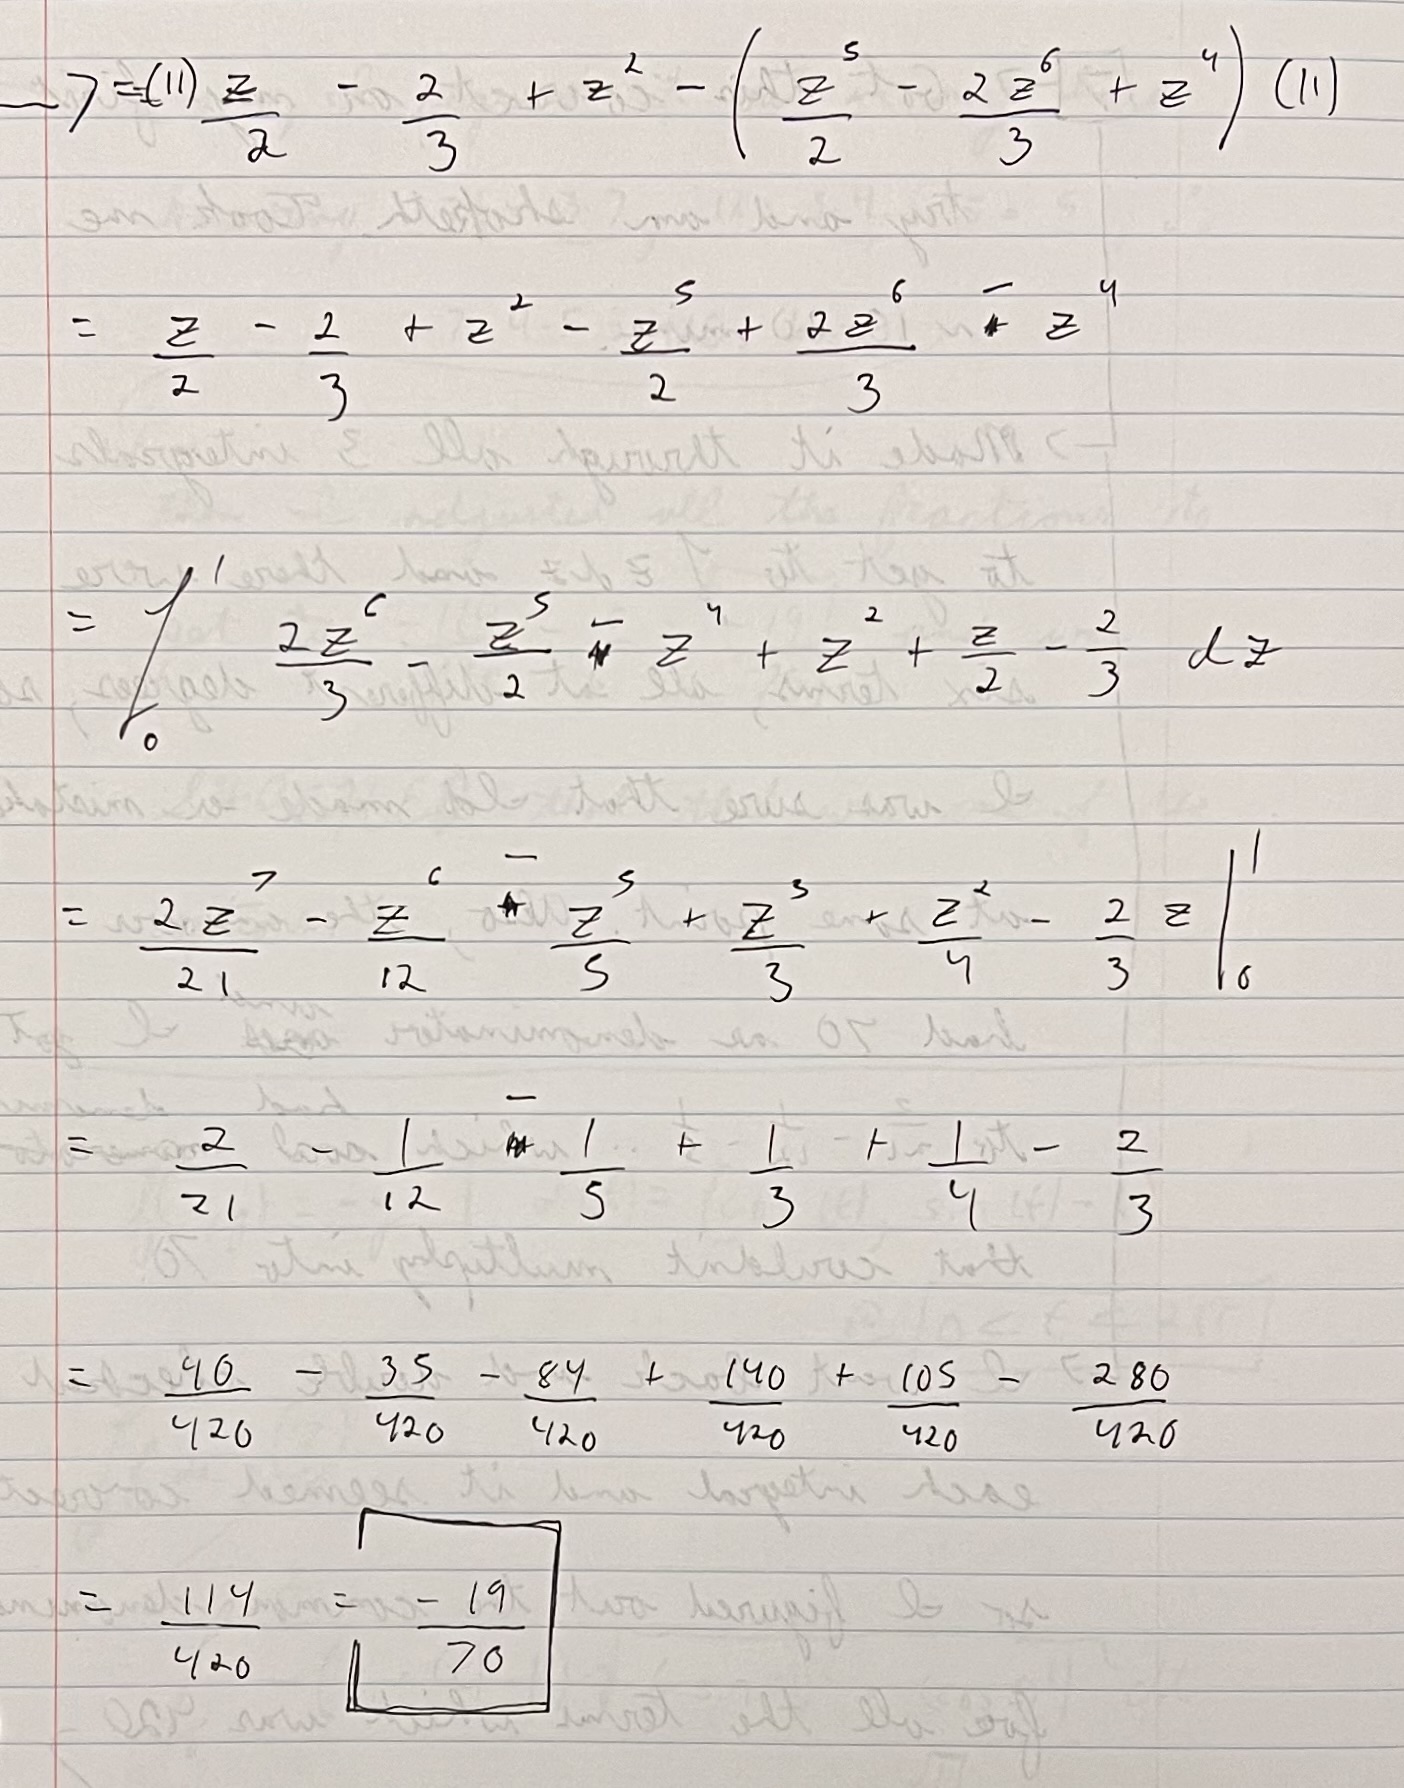 → = (11) z/2 - 2/3 + z² - (z⁵/2 - 2z⁶/3 + z⁴) (11)
= z/2 - 2/3 + z² - z⁵/2 + 2z⁶/3 - z⁴
= ∫₀¹ 2z⁶/3 - z⁵/2 - z⁴ + z² + z/2 - 2/3 dz
= 2z⁷/21 - z⁶/12 - z⁵/5 + z³/3 + z²/4 - 2/3 z |₀¹
= 2/21 - 1/12 - 1/5 + 1/3 + 1/4 - 2/3
= 40/420 - 35/420 - 84/420 + 140/420 + 105/420 - 280/420
= 114/420 = -19/70